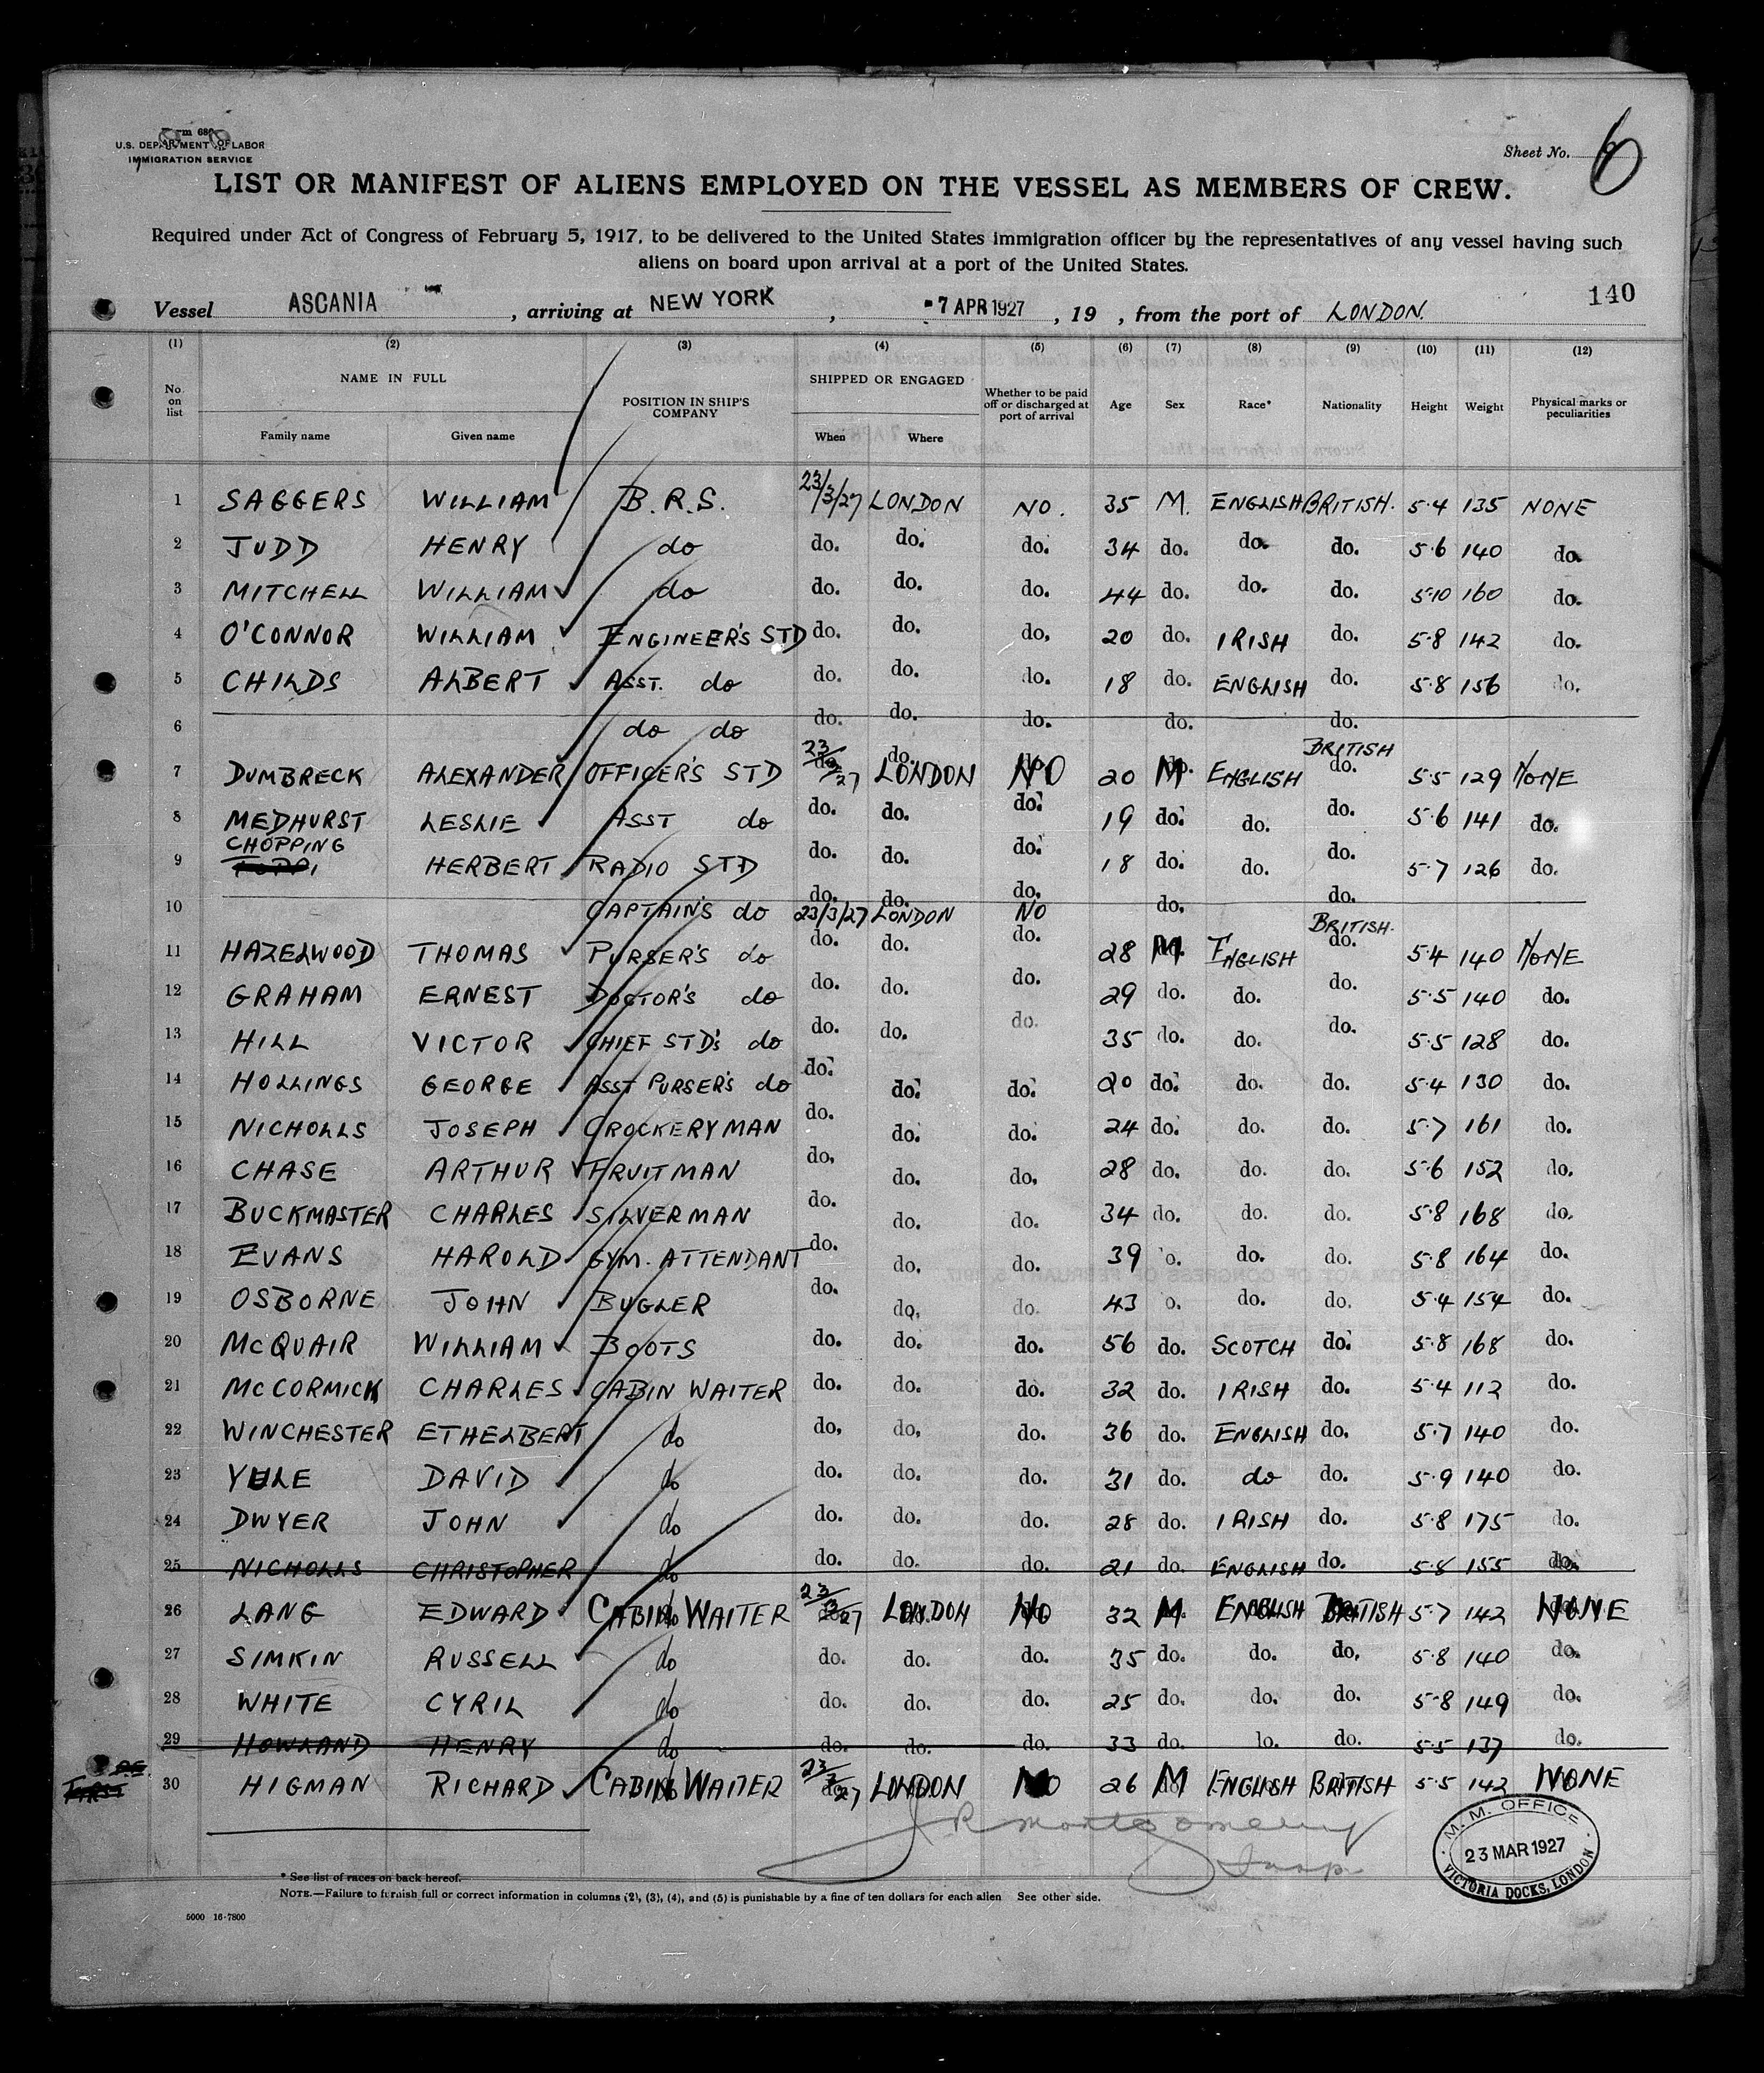 Form 680
U.S. DEPARTMENT OF LABOR
IMMIGRATION SERVICE
Sheet No. 6
LIST OR MANIFEST OF ALIENS EMPLOYED ON THE VESSEL AS MEMBERS OF CREW.
Required under Act of Congress of February 5, 1917, to be delivered to the United States immigration officer by the representatives of any vessel having such
aliens on board upon arrival at a port of the United States.
140
Vessel ASCANIA , arriving at NEW YORK , 7 APR 1927 , 19 , from the port of LONDON.
(1) (2) (3) (4) (5) (6) (7) (8) (9) (10) (11) (12)
No. on list NAME IN FULL POSITION IN SHIP'S COMPANY SHIPPED OR ENGAGED Whether to be paid off or discharged at port of arrival Age Sex Race* Nationality Height Weight Physical marks or peculiarities
Family name Given name When Where
1 SAGGERS WILLIAM B.R.S. 23/3/27 LONDON NO. 35 M. ENGLISH BRITISH. 5·4 135 NONE
2 JUDD HENRY do do. do. do. 34 do. do. do. 5·6 140 do.
3 MITCHELL WILLIAM do do. do. do. 44 do. do. do. 5·10 160 do.
4 O'CONNOR WILLIAM ENGINEER'S STD do. do. do. 20 do. IRISH do. 5·8 142 do.
5 CHILDS ALBERT ASST. do do. do. do. 18 do. ENGLISH do. 5·8 156 do.
6 do do do. do. do. do. do.
7 DUMBRECK ALEXANDER OFFICER'S STD 23/3/27 LONDON NO 20 M ENGLISH BRITISH 5·5 129 NONE
8 MEDHURST LESLIE ASST do do. do. do. 19 do. do. do. 5·6 141 do.
9 CHOPPING HERBERT RADIO STD do. do. do. 18 do. do. do. 5·7 126 do.
10 CAPTAIN'S do 23/3/27 LONDON NO do. do.
11 HAZELWOOD THOMAS PURSER'S do do. do. do. 28 M ENGLISH BRITISH. 5·4 140 NONE
12 GRAHAM ERNEST DOCTOR'S do do. do. do. 29 do. do. do. 5·5 140 do.
13 HILL VICTOR CHIEF STD'S do do. do. do. 35 do. do. do. 5·5 128 do.
14 HOLLINGS GEORGE ASST PURSER'S do do. do. do. 20 do. do. do. 5·4 130 do.
15 NICHOLLS JOSEPH CROCKERYMAN do. do. do. 24 do. do. do. 5·7 161 do.
16 CHASE ARTHUR FRUITMAN do. do. do. 28 do. do. do. 5·6 152 do.
17 BUCKMASTER CHARLES SILVERMAN do. do. do. 34 do. do. do. 5·8 168 do.
18 EVANS HAROLD GYM. ATTENDANT do. do. do. 39 o. do. do. 5·8 164 do.
19 OSBORNE JOHN BUGLER do. do. do. 43 o. do. do. 5·4 154 do.
20 McQUAIR WILLIAM BOOTS do. do. do. 56 do. SCOTCH do. 5·8 168 do.
21 McCORMICK CHARLES CABIN WAITER do. do. do. 32 do. IRISH do. 5·4 112 do.
22 WINCHESTER ETHELBERT do do. do. do. 36 do. ENGLISH do. 5·7 140 do.
23 YULE DAVID do do. do. do. 31 do. do do. 5·9 140 do.
24 DWYER JOHN do do. do. do. 28 do. IRISH do. 5·8 175 do.
25 NICHOLLS CHRISTOPHER do do. do. do. 21 do. ENGLISH do. 5·8 155 do.
26 LANG EDWARD CABIN WAITER 23/3/27 LONDON NO 32 M ENGLISH BRITISH 5·7 142 NONE
27 SIMKIN RUSSELL do do. do. do. 35 do. do. do. 5·8 140 do.
28 WHITE CYRIL do do. do. do. 25 do. do. do. 5·8 149 do.
29 HOWLAND HENRY do do. do. do. 33 do. lo. do. 5·5 137 do.
30 HIGMAN RICHARD CABIN WAITER 23/3/27 LONDON NO 26 M ENGLISH BRITISH 5·5 142 NONE
J R Montgomery
Insp
M. M. OFFICE
23 MAR 1927
VICTORIA DOCKS, LONDON
* See list of races on back hereof.
NOTE.—Failure to furnish full or correct information in columns (2), (3), (4), and (5) is punishable by a fine of ten dollars for each alien See other side.
5000 16-7800